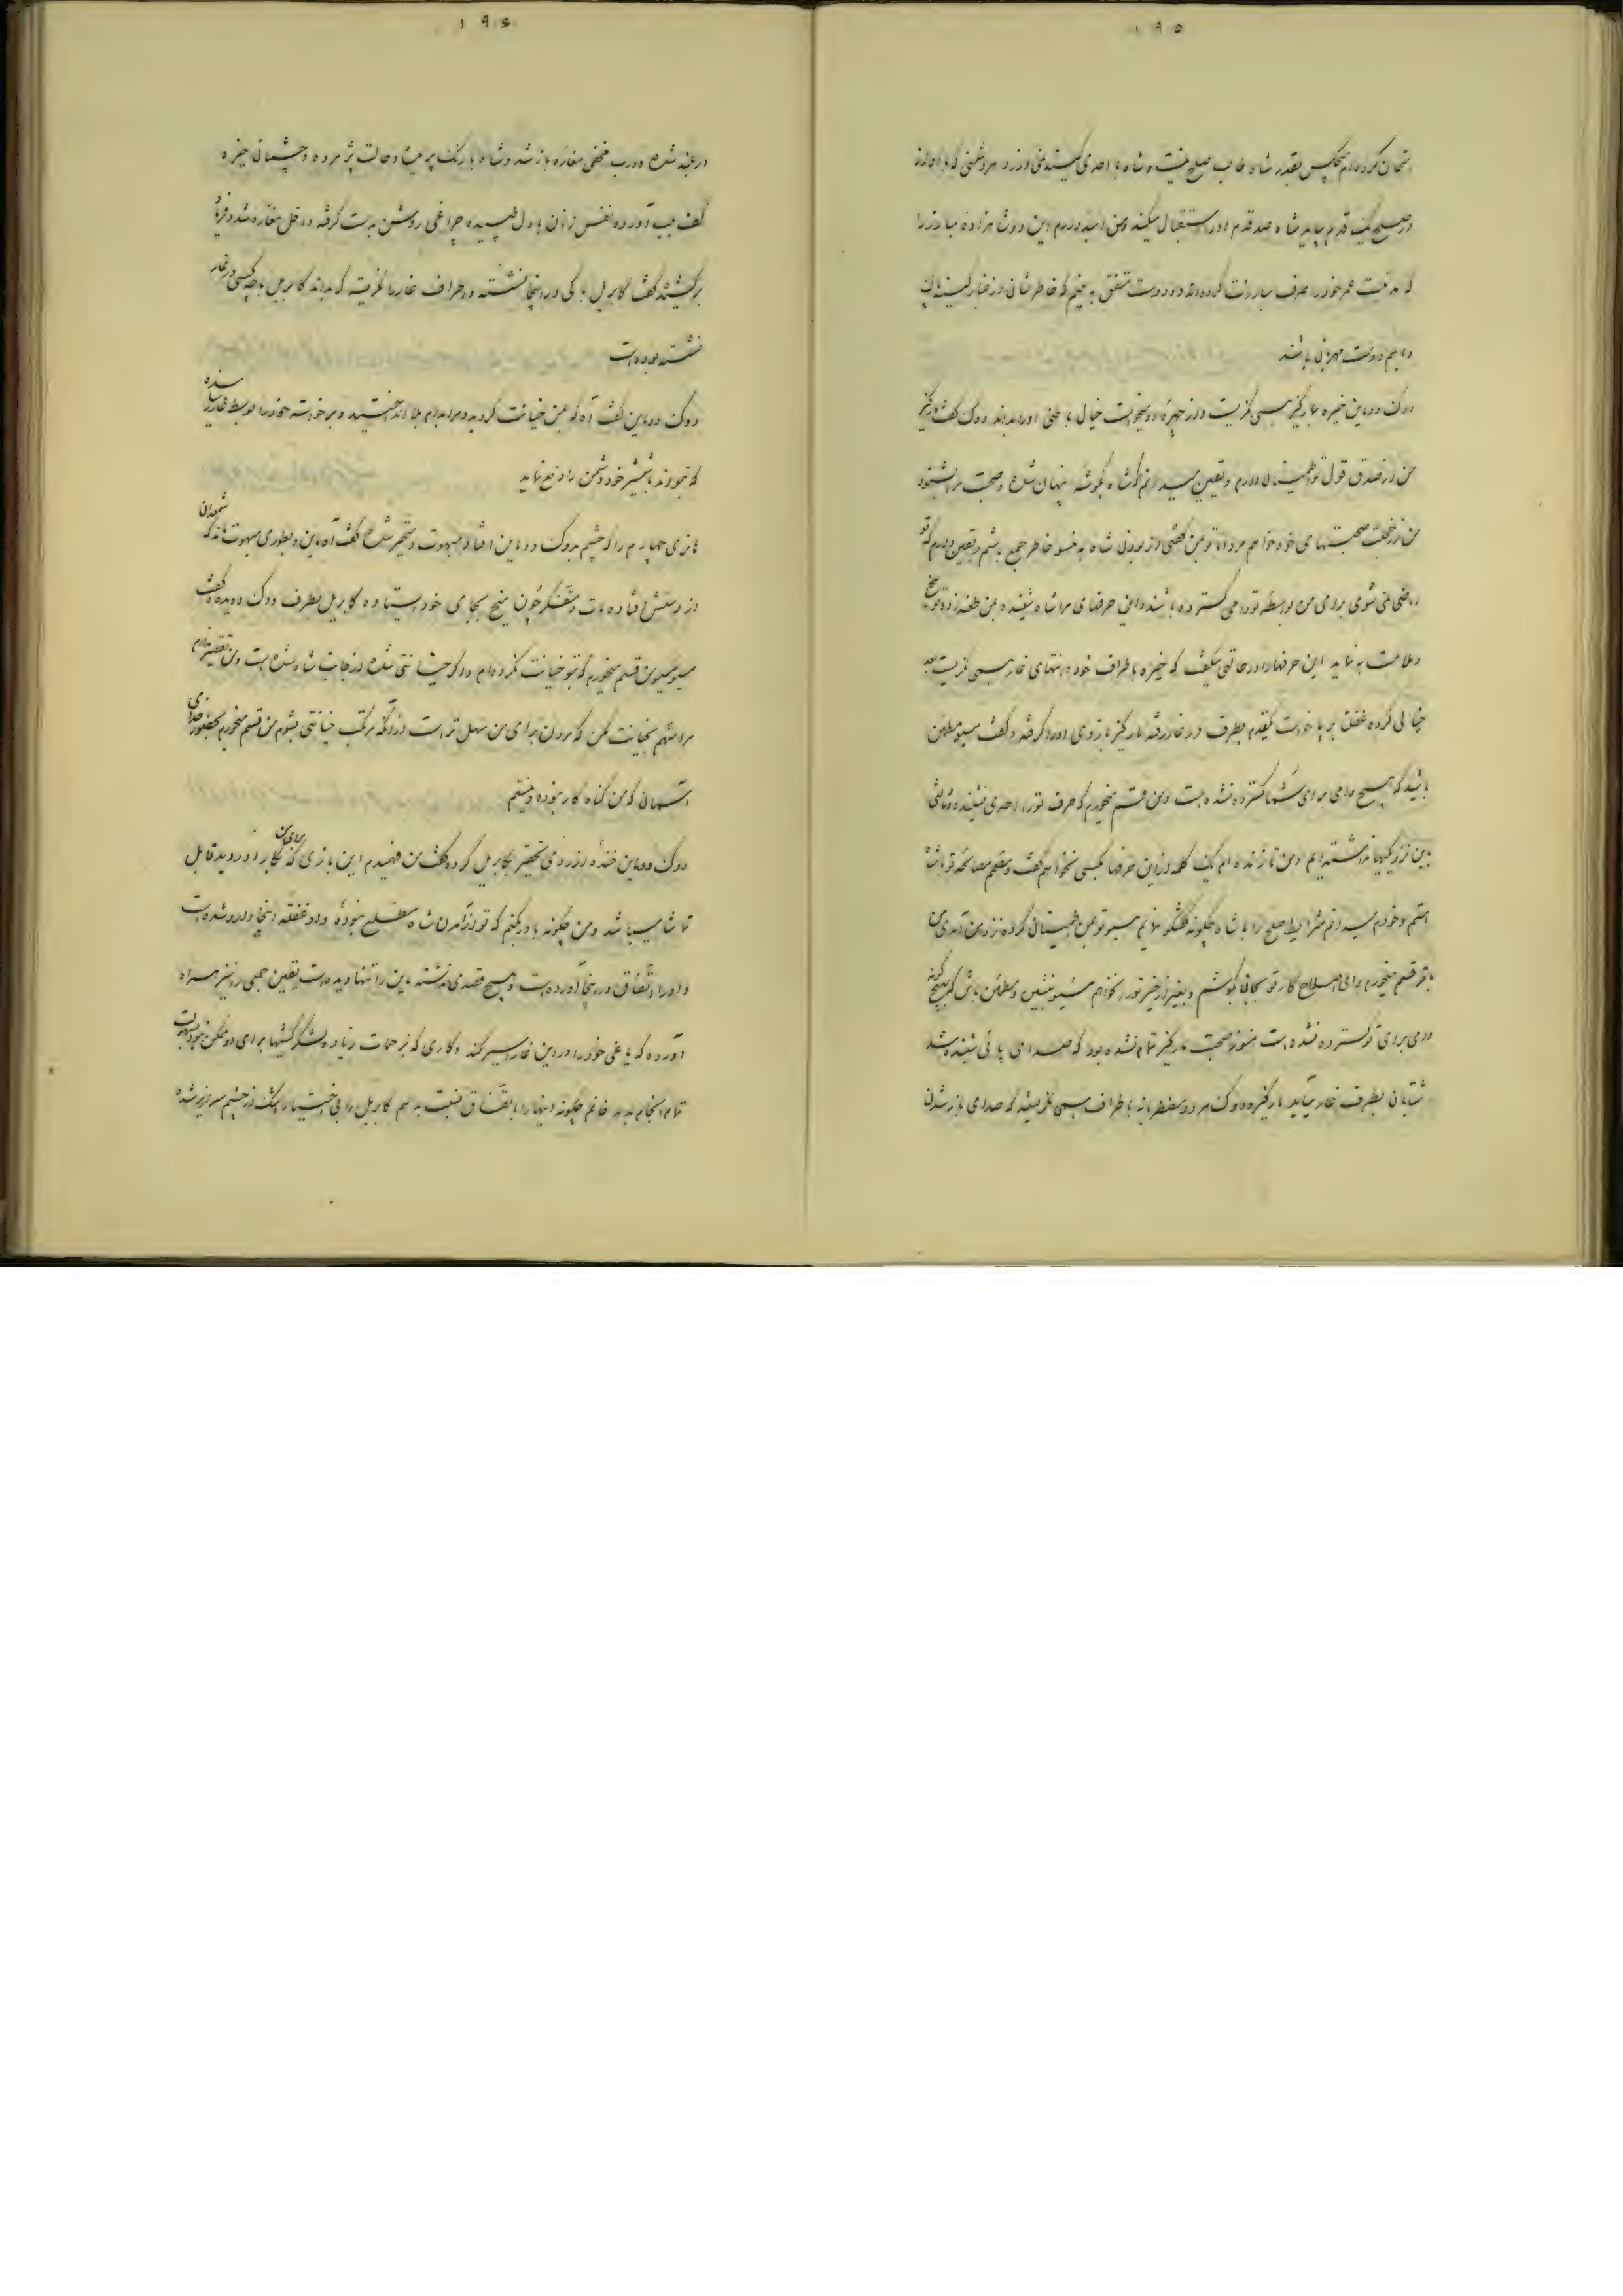 ۱۹۵
امتحان کرده‌ام هیچکس بقدر شاه طالب صلح نیست و شاه با احدی کینه نمی ورزد هر دشمنی که با او از
در صلح یک قدم بیاید شاه صد قدم او را استقبال میکند ومن امیدوارم این دو شاهزاده مبارز را
که مدتیست عمر خود را صرف مبارزت کرده‌اند دو دوست متفق به بینم که خاطرشان از غبار کینه پاک
و با هم دوست مهربانی باشند
دوک دوماین خیره بمارکیز همی نگریست و از چهره او میخواست خیال باطنی او را بداند دوک گفت مارکیز
من از صدق قول تو اطمینان دارم و یقین میدانم که شاه بگوشه پنهان شده و صحبت مرا میشنود
من از خجلت صحبتهای خود خواهم مرد اما تو بمن گفتی از بودن شاه به نسو خاطر جمع باشم و یقین دارم که تو
راضی نمی شوی برای من بواسطه تو دامی گسترده باشند و این حرفهای مرا شاه شنیده بمن طعنه زده توبیخ
و ملامت بنماید این حرفها را در حالتی میگفت که خیره باطراف خود و انتهای غار همی نگریست بعد
خیالی کرده غفلتا برپا خواست یکقدم بطرف در غار رفته مارکیز بازوی او را گرفته و گفت مسیو مطمئن
باشید که هیچ دامی برای شما گسترده نشده است ومن قسم میخورم که حرف تو را احدی نشنیده و ثالثی
باین نزدیکیها نداشته‌ایم ومن تا زنده ام یک کلمه از این حرفها بکسی نخواهم گفت و مصمم مصالحه تو با شاه
هستم و خودم میدانم شرایط صلح را با شاه چگونه گفتگو نمایم مسیو تو بمن اطمینانی کرده نزد من آمدی من
باقرقسم میخورم برای اصلاح کار تو بجان بکوشم و بغیر از خیر تو را نخواهم مسیو بنشین و مطمئن باش که هیچگونه
دامی برای تو گسترده نشده است هنوز صحبت مارکیز تمام نشده بود که صدای پائی شنیده شد
شتابان بطرف غار میآید مارکیز و دوک هر دو مضطربانه باطراف همی نگریستند که صدای باز شدن
۱۹۶
در بلند شده و درب مخفی مغاره باز شد و شاه با رنگ پریده و حالت پژمرده و چشمانی خیره
کف بلب آورده نفس زنان با دل طپیده چراغی روشن بدست گرفته داخل مغاره شد و فریاد
برکشید گفت گابریل با کی در اینجا نشسته و اطراف غار را نگریسته که بداند گابریل با چه کسی در غار
نشسته بوده است
دوک دوماین گفت آه که بمن خیانت کردید و مرا بدام بلا انداختید و برخواسته خود را بوسط غار رسانده
که بتواند با شمشیر خود دشمن را دفع نماید
هانری چهارم را که چشم بدوک دوماین افتاد مبهوت و متحیر شده گفت آه ماین و بطوری مبهوت ماند که شمعدان
از دستش افتاده مات و متفکر چون میخ بجای خود ایستاده گابریل بطرف دوک دویده گفت
مسیو مسیو من قسم میخورم که بتو خیانت نکرده‌ام و اگر خیانتی شده از جانب شاه شده است ومن تقصیر ندارم
مرا متهم بخیانت مکن که مردن برای من سهل تر است از آنکه مرتکب خیانتی بشوم من قسم میخورم بحضور خدای
آسمان که من گناه کار نبوده و نیستم
دوک دوماین خنده از روی تحقیر بگابریل کرده گفت من فهمیدم این بازی که برای من بکار آوردید قابل
تماشا میباشد ومن چگونه باور بکنم که تو از آمدن شاه مطلع نبوده و او غفلة اینجا وارد شده است
و او را اتفاق در اینجا آورده است و هیچ قصدی نداشته ماین را تنها دیده است یقین جمعی را نیز همراه
آورده که یاغی خود را در این غار اسیر کند و کاری که بزحمات زیاد و لشکرکشیها برای او ممکن نبود بسهولت
تمام انجام بدهد خانم چگونه اینها را باتفاق نسبت بدهم گابریل را بی اختیار اشک از چشم سرازیر شده